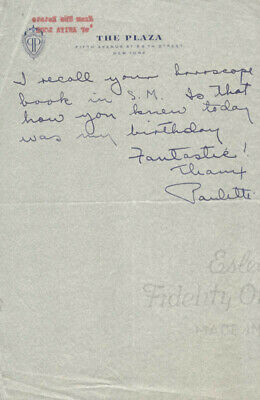 THE PLAZA
FIFTH AVENUE AT 59TH STREET
NEW YORK
I recall your horoscope
book in S.M. Is that
how you knew today
was my birthday
Fantastic!
Thanx
Paulette
Fidelity On
MADE IN